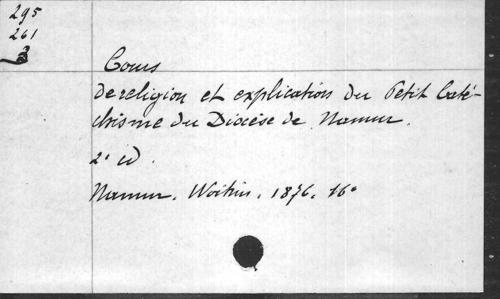 295
261
3
Cours
de religion et explication du Petit Caté-
chisme du Diocèse de Namur.
2e éd.
Namur. Woitrin. 1876. 16°